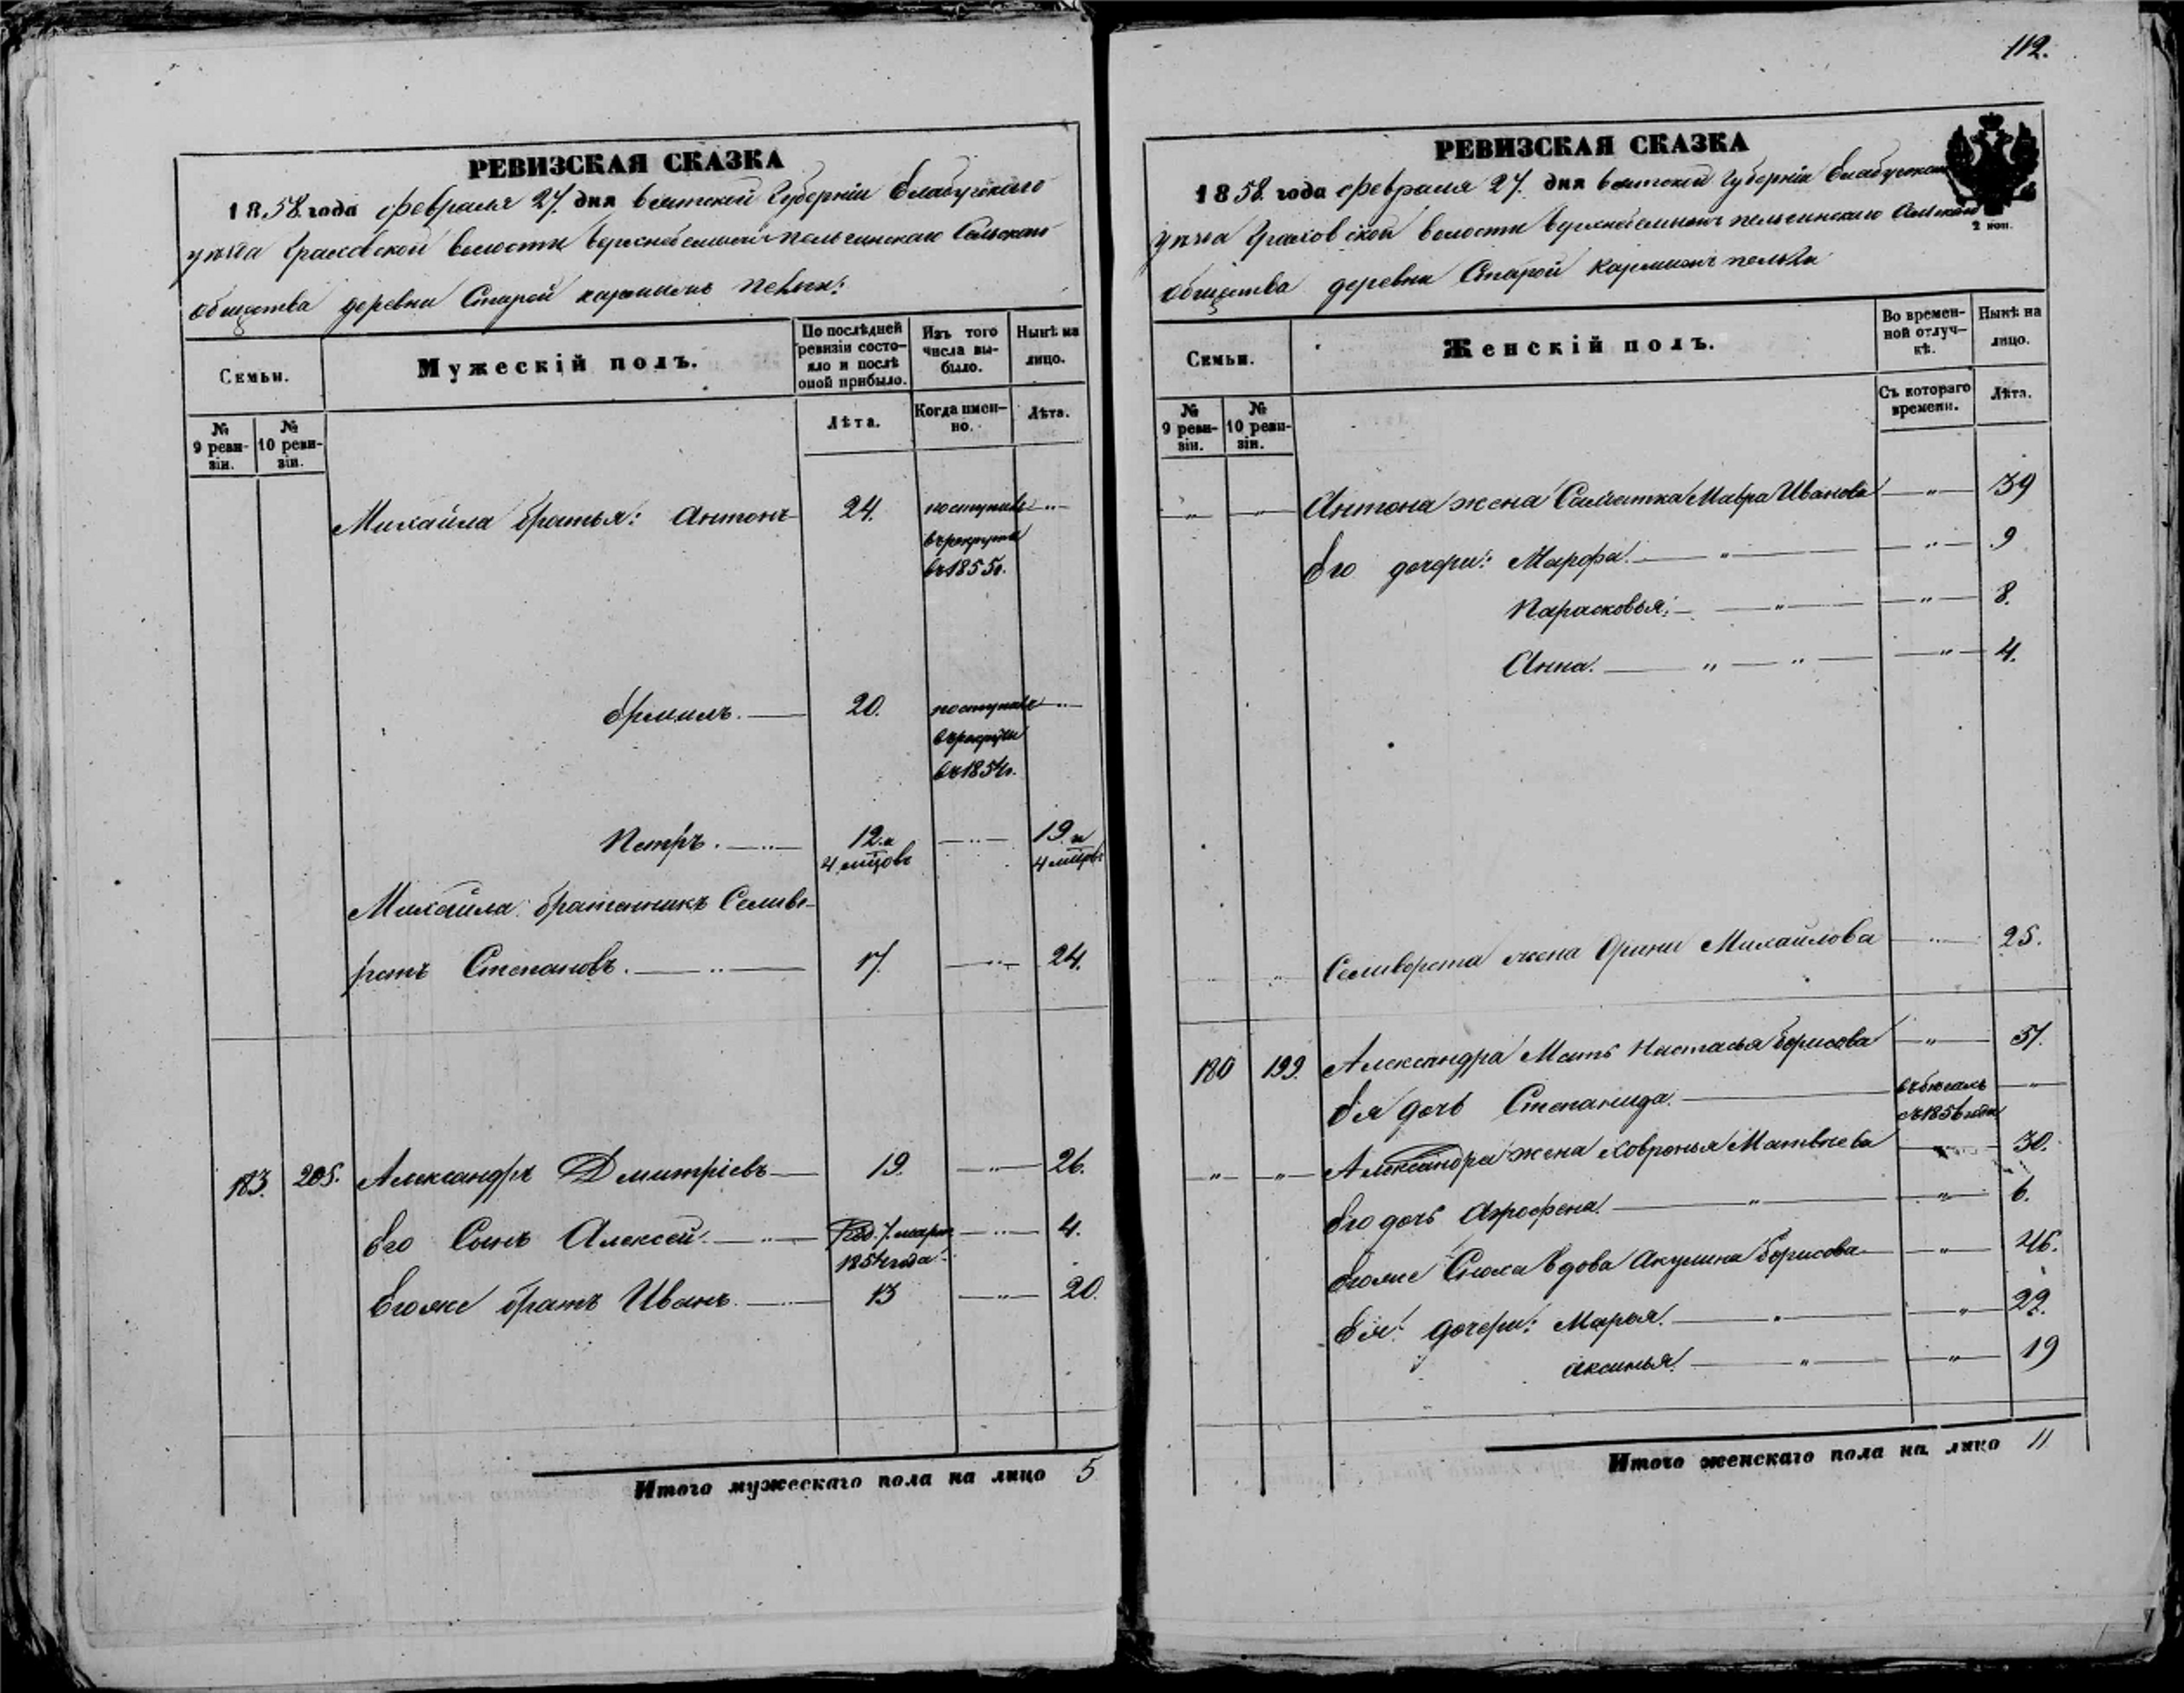 112.
РЕВИЗСКАЯ СКАЗКА
1858. года Февраля 27. дня Вятской Губерніи Елабугскаго
уѣзда Граховской волости Сельскаго
общества деревни Старой
Семьи.
Мужескій полъ.
По послѣдней ревизіи состояло и послѣ оной прибыло.
Изъ того числа выбыло.
Нынѣ на лицо.
№ 9 ревизіи.
№ 10 ревизіи.
Лѣта.
Когда именно.
Лѣта.
Михайла братья: Антонъ 24. поступилъ
въ рекруты
въ 1855г.
Ермилъ. 20. поступилъ
въ рекруты
въ 1854г.
Петръ. 12. и 19. и
4 мѣцовъ 4 мѣцовъ
Михайла братенникъ Селиве-
рстъ Степановъ. 17. 24.
183. 205. Александръ Дмитріевъ 19. 26.
Его Сынъ Алексей. 7. 4.
1854 года
Егоже братъ Иванъ. 13 20.
Итого мужескаго пола на лицо 5
РЕВИЗСКАЯ СКАЗКА
1858. года Февраля 27. дня Вятской Губерніи Елабугскаго
уѣзда Граховской волости Сельскаго
2 коп.
общества деревни Старой
Семьи.
Женскій полъ.
Во временной отлучкѣ.
Нынѣ на лицо.
№ 9 ревизіи.
№ 10 ревизіи.
Съ котораго времени.
Лѣта.
Антона жена Салдатка Мавра Иванова 39
Его дочери: Марфа. 9
Парасковья. 8.
Анна. 4.
Селиверста жена Орина Михайлова 25.
180 199. Александра Мать Настасья Борисова 51.
Ея дочь Степанида. въ бѣгахъ
съ 1856 года
Александра жена Ховронья Матвѣева 30.
Его дочь Аграфена. 6.
Егоже Сноха Вдова Акулина Борисова 46.
Ея дочери: Марья. 22.
Аксинья. 19
Итого женскаго пола на лицо 11